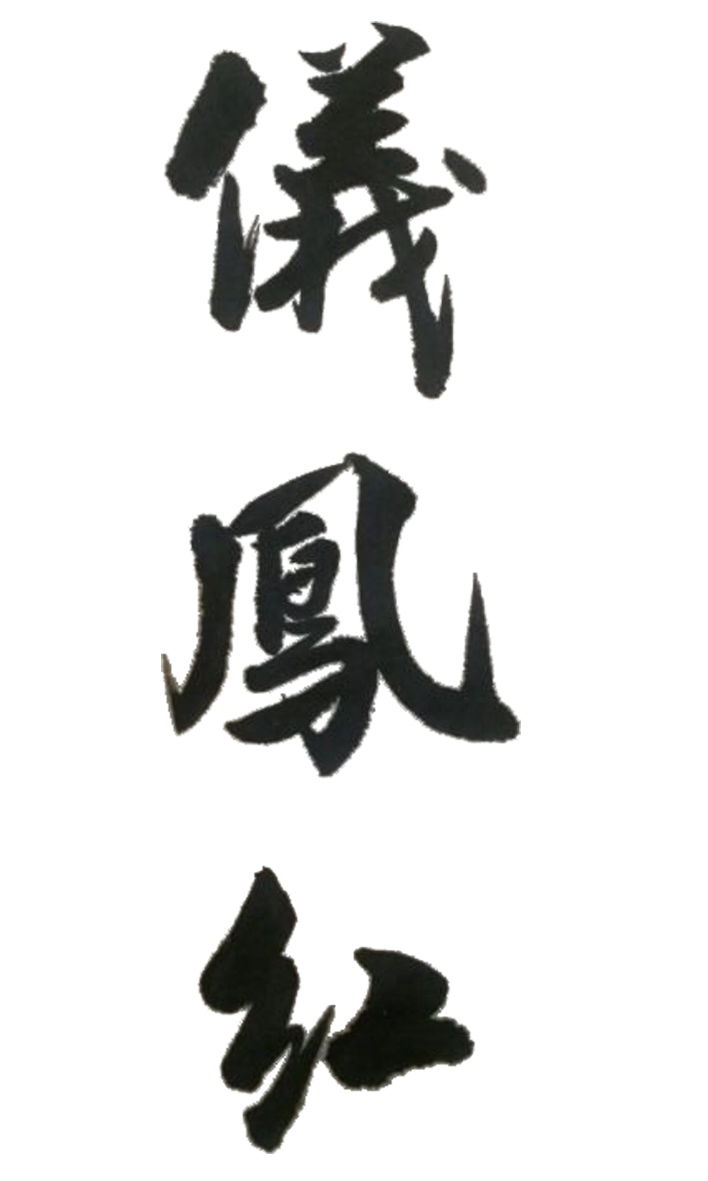 儀鳳紅